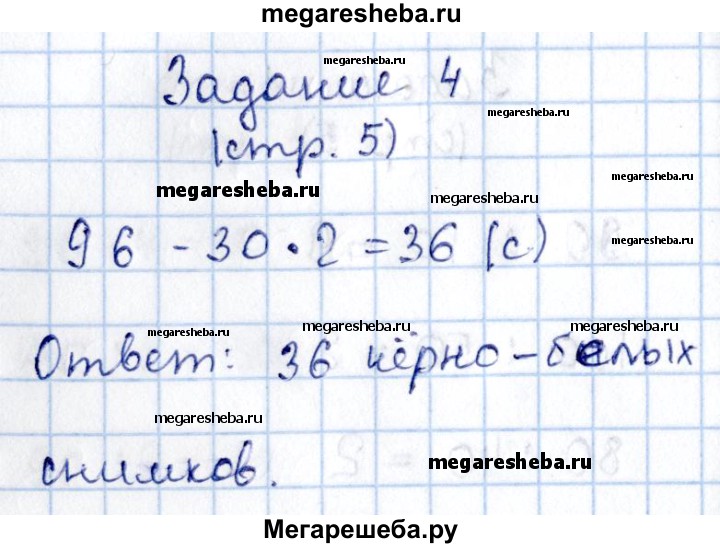 megaresheba.ru
megaresheba.ru
Задание 4
megaresheba.ru
(стр. 5)
megaresheba.ru
megaresheba.ru
megaresheba.ru
96 - 30 • 2 = 36 (с)
megaresheba.ru
megaresheba.ru
megaresheba.ru
megaresheba.ru
Ответ: 36 чёрно-белых
megaresheba.ru
снимков.
megaresheba.ru
Мегарешеба.ру